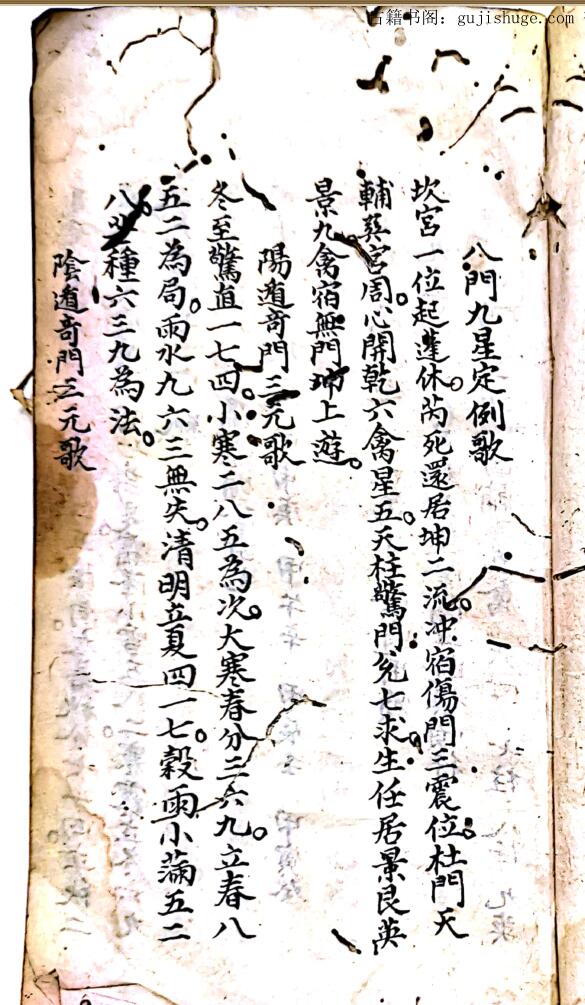 古籍书阁：gujishuge.com
八門九星定例歌
坎宮一位起蓬休。芮死還居坤二流。冲宿傷門三震位。杜門天
輔巽宮周。心開乾六禽星五。天柱驚門兌七求。生任居景艮英
景九禽宿無門坤上遊。
陽遁奇門三元歌
冬至驚直一七四。小寒二八五為次。大寒春分三六九。立春八
五二為局。雨水九六三無失。清明立夏四一七。穀雨小滿五二
八。芒種六三九為法。
陰遁奇門三元歌